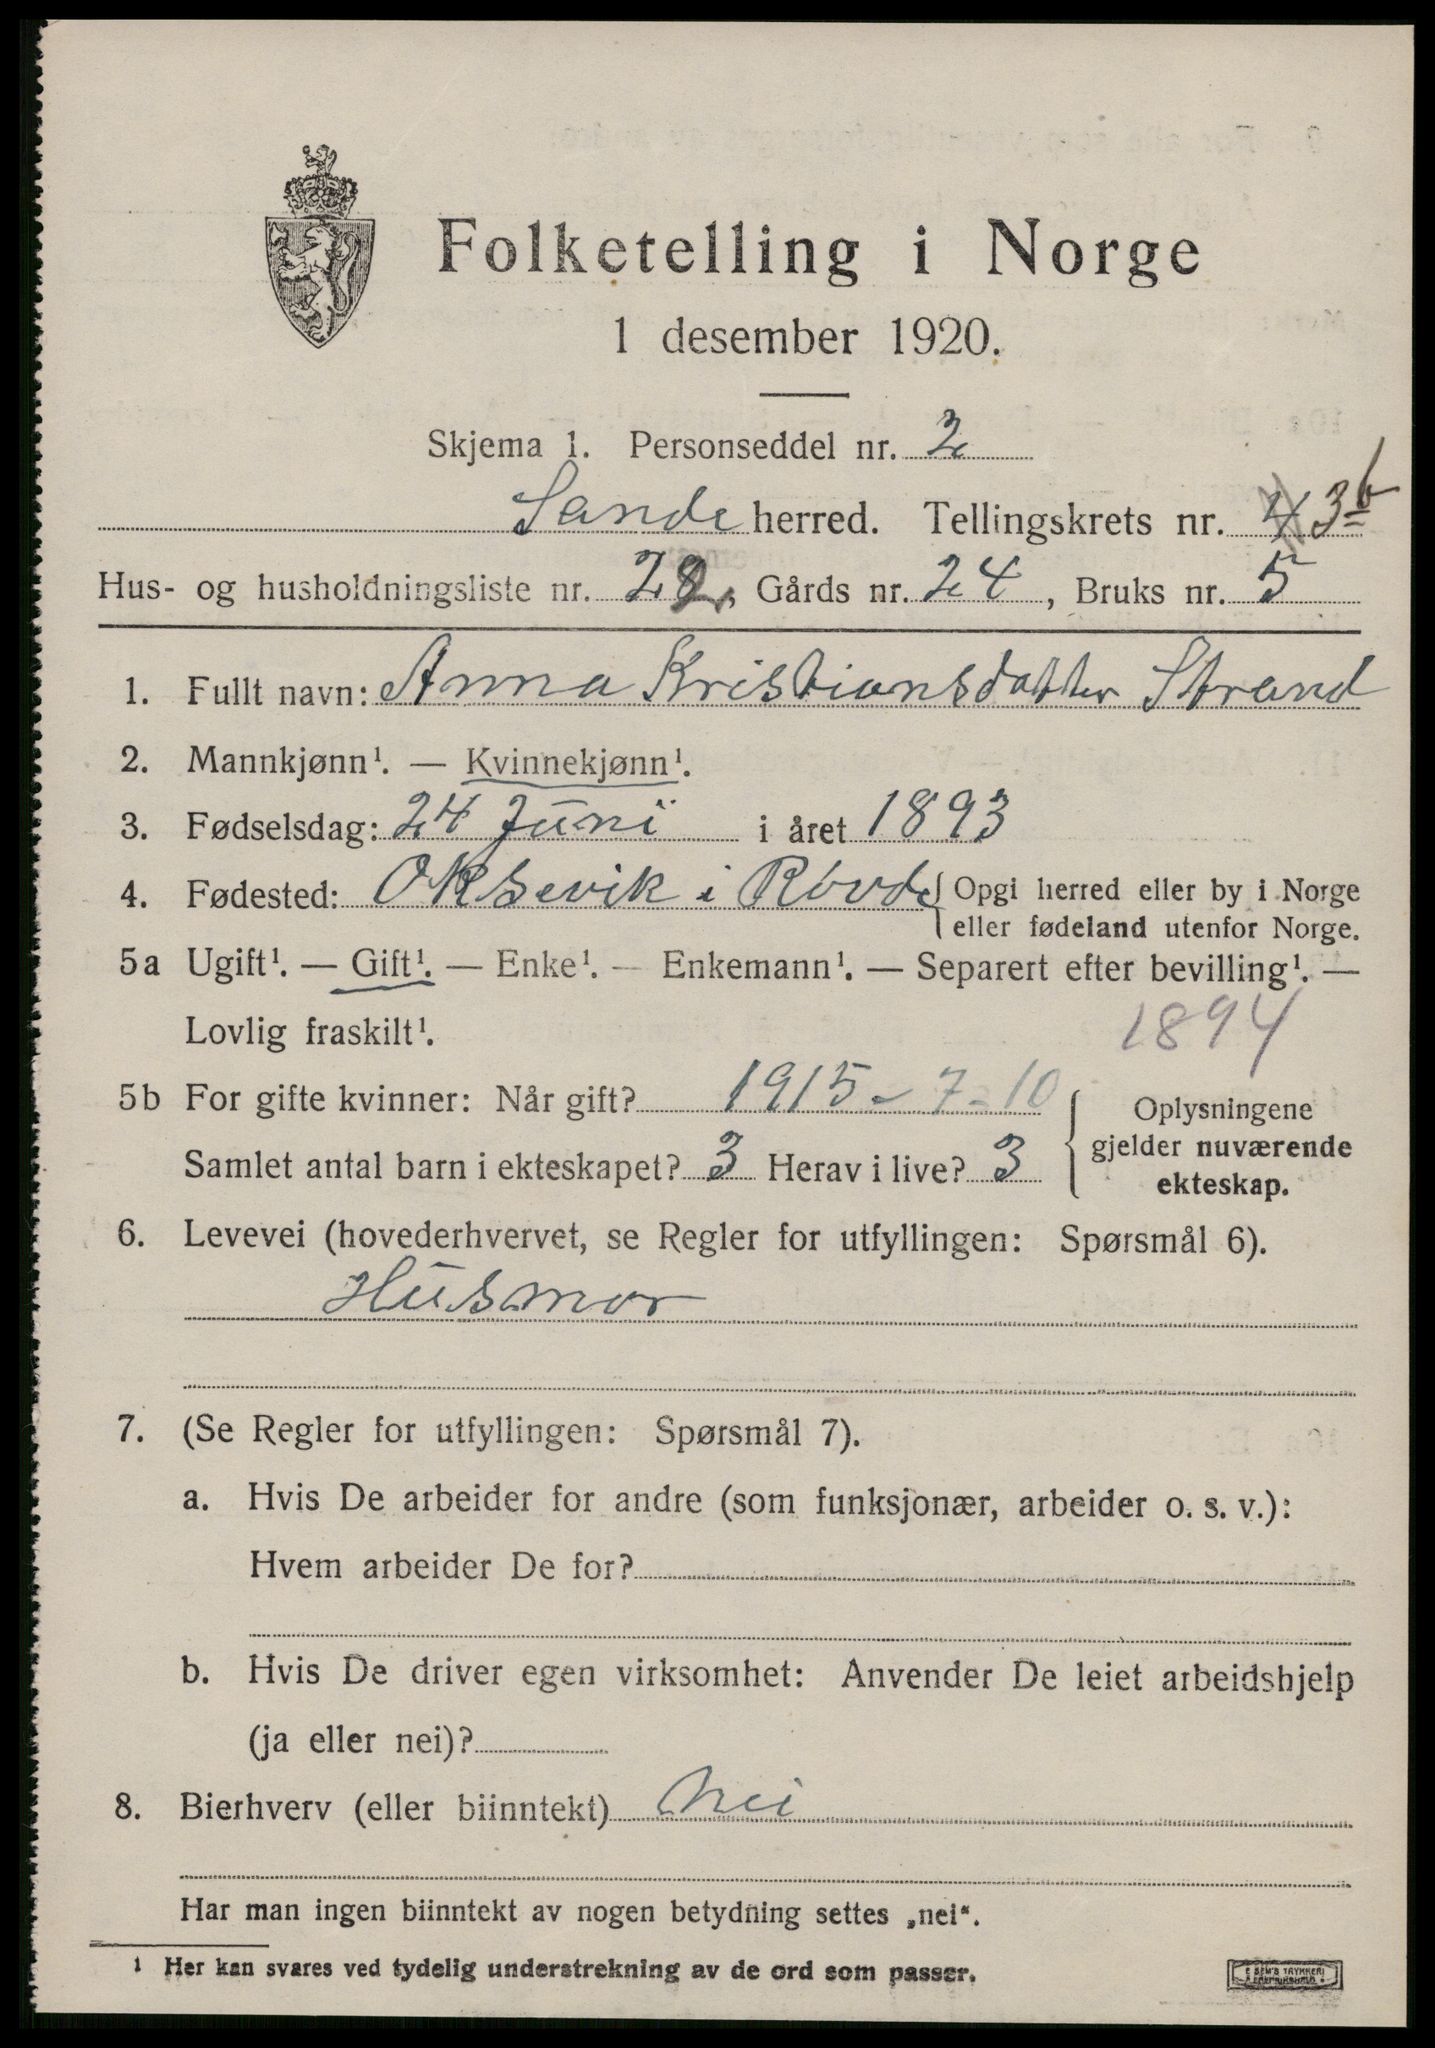 Folketelling i Norge
1 desember 1920.
Skjema 1. Personseddel nr. 2
Sande herred. Tellingskrets nr. 4 3b
Hus- og husholdningsliste nr. 22, Gårds nr. 24, Bruks nr. 5
1. Fullt navn: Anna Kristiansdatter Strand
2. Mannkjønn¹. — Kvinnekjønn¹.
3. Fødselsdag: 24 Juni i året 1893
4. Fødested: Oksevik i Rovde { Opgi herred eller by i Norge
eller fødeland utenfor Norge.
5a Ugift¹. — Gift¹. — Enke¹. — Enkemann¹. — Separert efter bevilling¹. —
Lovlig fraskilt¹. 1894
5b For gifte kvinner: Når gift? 1915 - 7 - 10
Samlet antal barn i ekteskapet? 3 Herav i live? 3
{ Oplysningene
gjelder nuværende
ekteskap.
6. Levevei (hovederhvervet, se Regler for utfyllingen: Spørsmål 6).
Husmor
7. (Se Regler for utfyllingen: Spørsmål 7).
a. Hvis De arbeider for andre (som funksjonær, arbeider o. s. v.):
Hvem arbeider De for?
b. Hvis De driver egen virksomhet: Anvender De leiet arbeidshjelp
(ja eller nei)?
8. Bierhverv (eller biinntekt) Nei
Har man ingen biinntekt av nogen betydning settes „nei“.
¹ Her kan svares ved tydelig understrekning av de ord som passer.